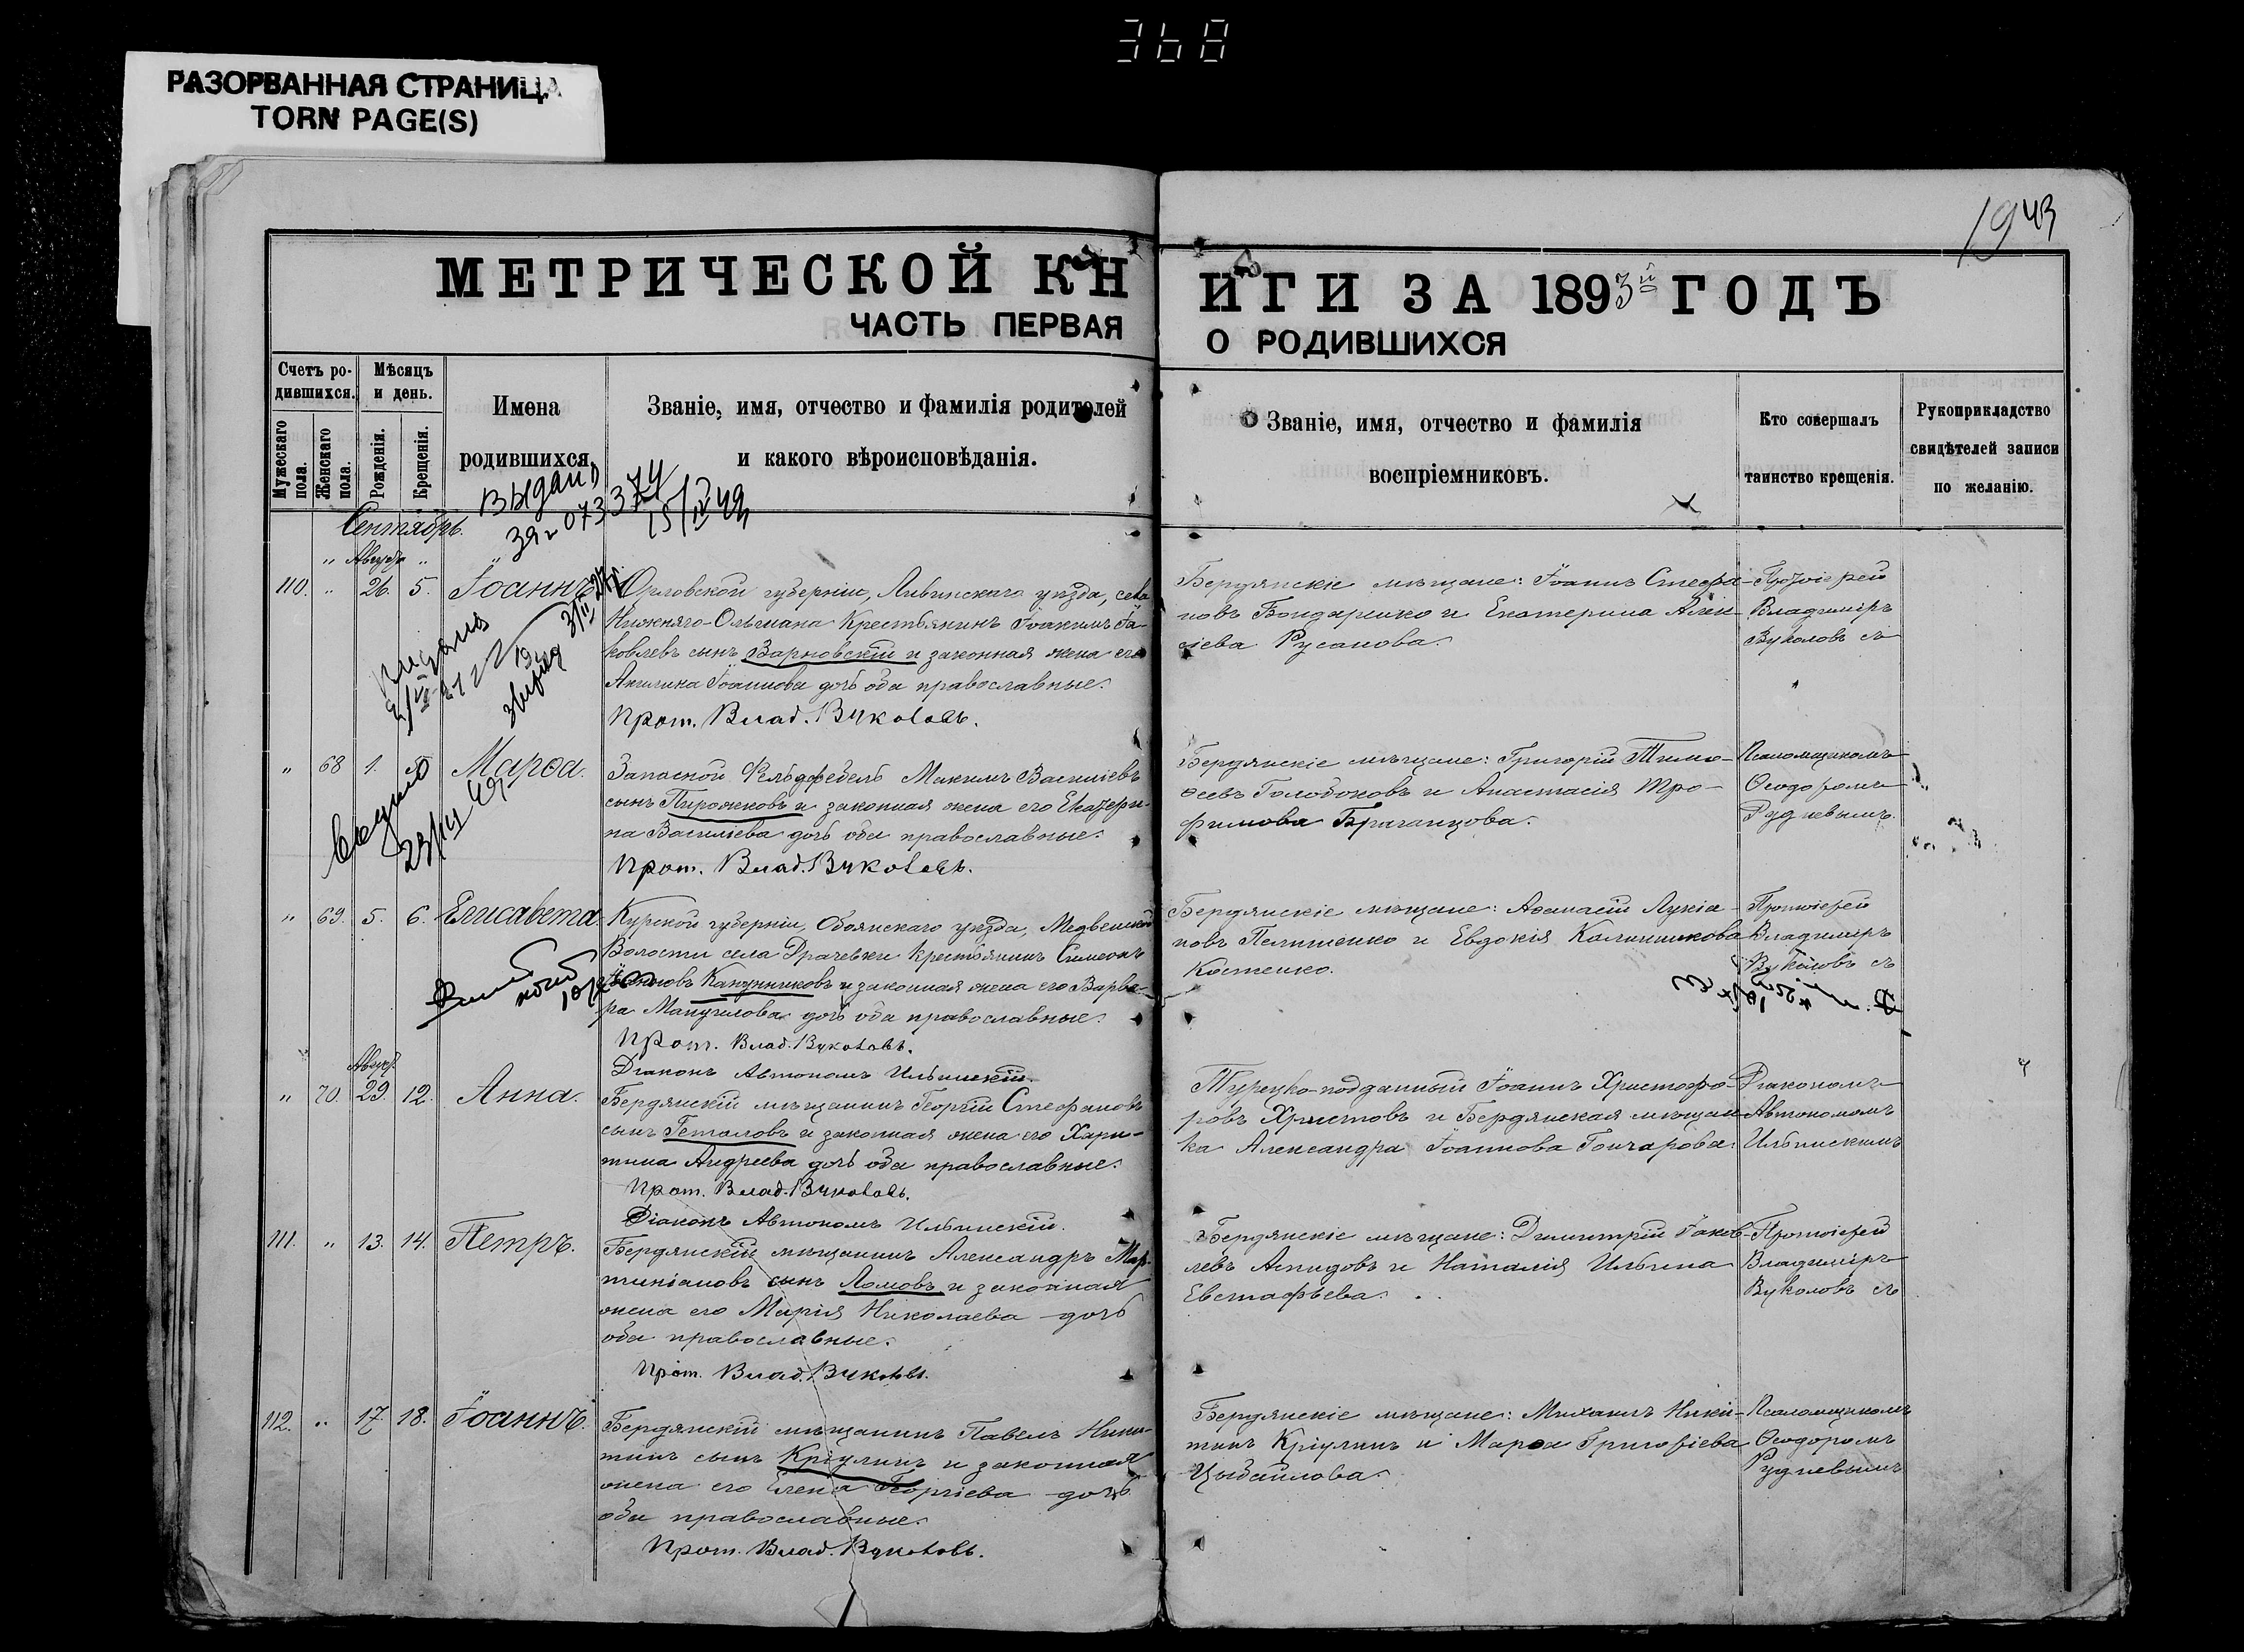 368
РАЗОРВАННАЯ СТРАНИЦА
TORN PAGE(S)
1943
МЕТРИЧЕСКОЙ КН
ИГИ ЗА 1893й ГОДЪ
ЧАСТЬ ПЕРВАЯ
О РОДИВШИХСЯ
Счетъ ро-
дившихся.
Мужескаго пола.
Женскаго пола.
Мѣсяцъ
и день.
Рожденія.
Крещенія.
Имена
родившихся.
Званіе, имя, отчество и фамилія родителей
и какого вѣроисповѣданія.
Званіе, имя, отчество и фамилія
воспріемниковъ.
Кто совершалъ
таинство крещенія.
Рукоприкладство
свидѣтелей записи
по желанію.
Сентябрь.
110. " 26. 5. Іоаннъ
Орловской губерніи, Ливенскаго уѣзда, села
Нижняго-Ольшана Крестьянинъ Іоакимъ Іа-
ковлевъ сынъ Варновскій и законная жена его
Ангелина Іоаннова дочь оба православные.
Прот. Влад. Вуколовъ.
Бердянскіе мѣщане: Іоаннъ Стефа-
новъ Бондаренко и Екатерина Алек-
сіева Русанова.
Протоіерей
Владиміръ
Вуколовъ съ
" 68 1. Марѳа.
Запасной Фельдфебель Максимъ Василіевъ
сынъ Пирожковъ и законная жена его Екатери-
на Василіева дочь оба православные.
Прот. Влад. Вуколовъ.
Бердянскіе мѣщане: Григорій Тимо-
ѳеевъ Голобоковъ и Анастасія Тро-
фимова
Псаломщикомъ
Ѳеодоромъ
Рудневымъ.
" 69. 5. 6. Елисавета
Курской губерніи, Обоянскаго уѣзда, Медвенской
Волости села Драчевки крестьянинъ Симеонъ
Канунниковъ и законная жена его Варва-
ра Мануилова дочь оба православные.
Прот. Влад. Вуколовъ.
Діаконъ Автономъ Ильинскій.
Бердянскіе мѣщане: Аѳанасій Лукіа-
новъ Пелипенко и Евдокія Калинникова
Костенко.
Протоіерей
Владиміръ
Вуколовъ съ
" 70. 29. 12. Анна.
Бердянскій мѣщанинъ Георгій Стефановъ
сынъ Геталовъ и законная жена его Хари-
тина Андреева дочь оба православные.
Прот. Влад. Вуколовъ.
Діаконъ Автономъ Ильинскій.
Турецко-подданный Іоаннъ Христофо-
ровъ Христовъ и Бердянская мѣщан-
ка Александра Іоаннова Гончарова.
Діакономъ
Автономомъ
Ильинскимъ
111. " 13. 14. Петръ.
Бердянскій мѣщанинъ Александръ Мар-
тиніановъ сынъ Ломовъ и законная
жена его Марія Николаева дочь
оба православные.
Прот. Влад. Вуколовъ.
Бердянскіе мѣщане: Димитрій Іаков-
левъ Аспидовъ и Наталія Ильина
Евстафьева.
Протоіерей
Владиміръ
Вуколовъ съ
112. " 17. 18. Іоаннъ.
Бердянскій мѣщанинъ Павелъ Ники-
тинъ сынъ Кріулинъ и законная
жена его Елена Георгіева дочь
оба православные.
Прот. Влад. Вуколовъ.
Бердянскіе мѣщане: Михаилъ Ники-
тинъ Кріулинъ и Марѳа Григоріева
Цыбайлова.
Псаломщикомъ
Ѳеодоромъ
Рудневымъ